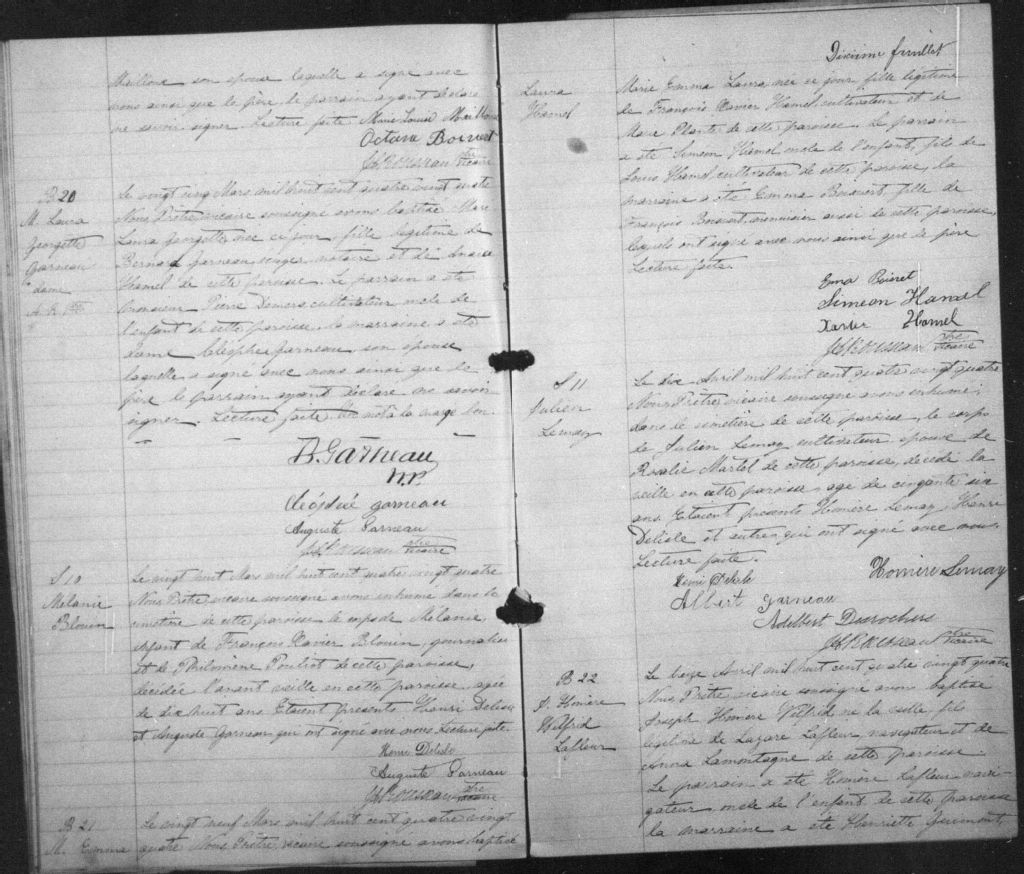 Mailloux son epouse laquelle a signe avec
nous ainsi que le père, le parrain ayant declare
ne savoir signer. Lecture faite. Marie Louise Mailloux
Octave Boisvert
ptre vicaire
B 20
M. Laura
Georgette
Garneau
dame
Le vingt cinq Mars mil huit cent quatre vingt quatre
Nous Prêtre vicaire soussigne avons baptise Marie
Laura Georgette nee ce jour, fille legitime de
Bernard Garneau, notaire et de
Hamel de cette paroisse. Le parrain a ete
Monsieur Pierre Demers cultivateur oncle de
l'enfant de cette paroisse, la marraine a ete
Dame Cléophe Garneau son epouse
laquelle a signe avec nous ainsi que le
père le parrain ayant declare ne savoir
signer. Lecture faite. la marge
B. Garneau
N.P.
Garneau
Auguste Garneau
ptre vicaire
S 10
Mélanie
Blouin
Le vingt huit Mars mil huit cent quatre vingt quatre
Nous Prêtre vicaire soussigne avons inhume dans le
cimetière de cette paroisse le corps de Mélanie,
enfant de François Xavier Blouin, journalier
et de Philomène Pouliot de cette paroisse,
décédée l'avant veille en cette paroisse, agée
de dix huit ans. Etaient presents Henri Delisle
et Auguste Garneau qui ont signé avec nous. Lecture faite.
Henri Delisle
Auguste Garneau
ptre vicaire
B 21
M. Emma
Le vingt neuf Mars mil huit cent quatre vingt
quatre Nous Prêtre vicaire soussigne avons baptisé
Dixième feuillet
Laura
Hamel
Marie Emma Laura, nee ce jour, fille légitime
de François Xavier Hamel, cultivateur et de
Marie Plante de cette paroisse. Le parrain
a ete Simeon Hamel oncle de l'enfant, fils de
Louis Hamel, cultivateur de cette paroisse, la
marraine a été Emma Boisvert fille de
François Boisvert, menuisier aussi de cette paroisse,
lesquels ont signé avec nous ainsi que le père
Lecture faite.
Ema Boisvert
Simeon Hamel
Xavier Hamel
ptre vicaire
S 11
Julien
Lemay
Le dix Avril mil huit cent quatre vingt quatre
Nous Prêtre vicaire soussigne avons inhume,
dans le cimetière de cette paroisse, le corps
de Julien Lemay cultivateur epoux de
Rosalie Martel de cette paroisse, decede la
veille en cette paroisse, age de cinquante six
ans. Etaient presents Homère Lemay, Henri
Delisle et autres qui ont signé avec nous.
Lecture faite.
Henri Delisle Homère Lemay
Albert Garneau
Adelbert Desrochers
ptre vicaire
B 22
J. Homère
Wilfrid
Lafleur
Le treize Avril mil huit cent quatre vingt quatre
Nous Prêtre vicaire soussigné avons baptise
Joseph Homère Wilfrid né la veille, fils
legitime de Lazare Lafleur, navigateur et de
Anna Lamontagne de cette paroisse.
Le parrain a ete Homère Lafleur navi-
gateur, oncle de l'enfant de cette paroisse
la marraine a ete Henriette